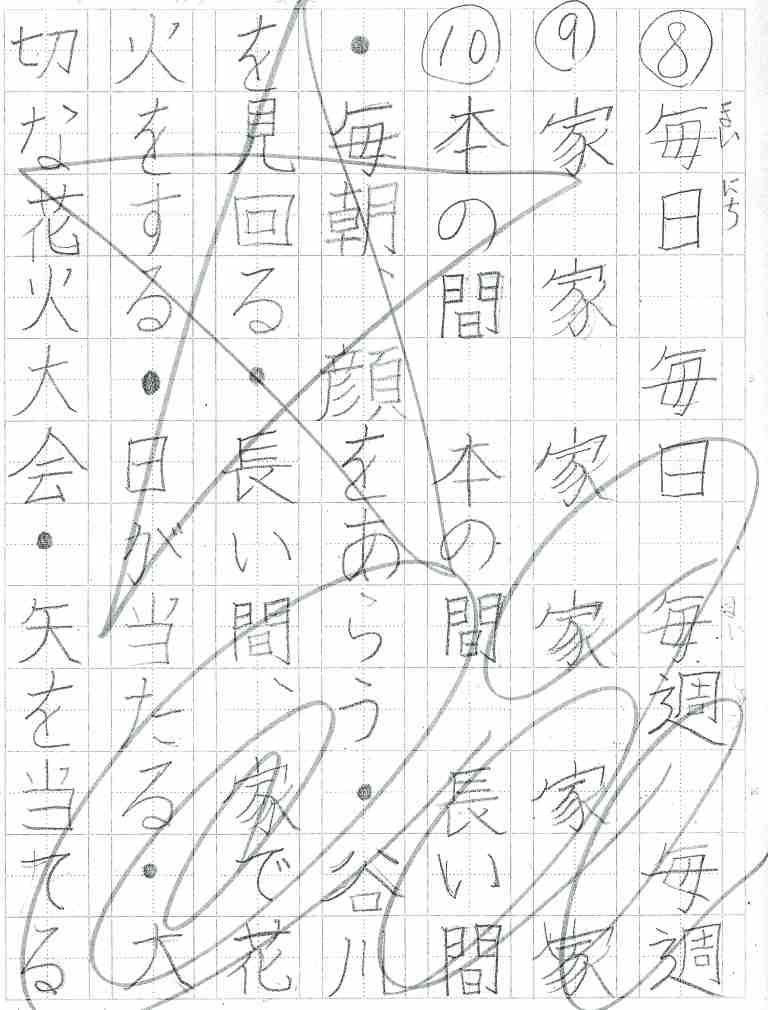 ⑧毎日 毎日 毎週 毎週
まいにち
⑨家 家 家 家 家 家
⑩本の間 本の間 長い間
・毎朝、顔をあらう・谷川
を見回る・長い間、家で花
火をする・日が当たる・大
切な花火大会・矢を当てる